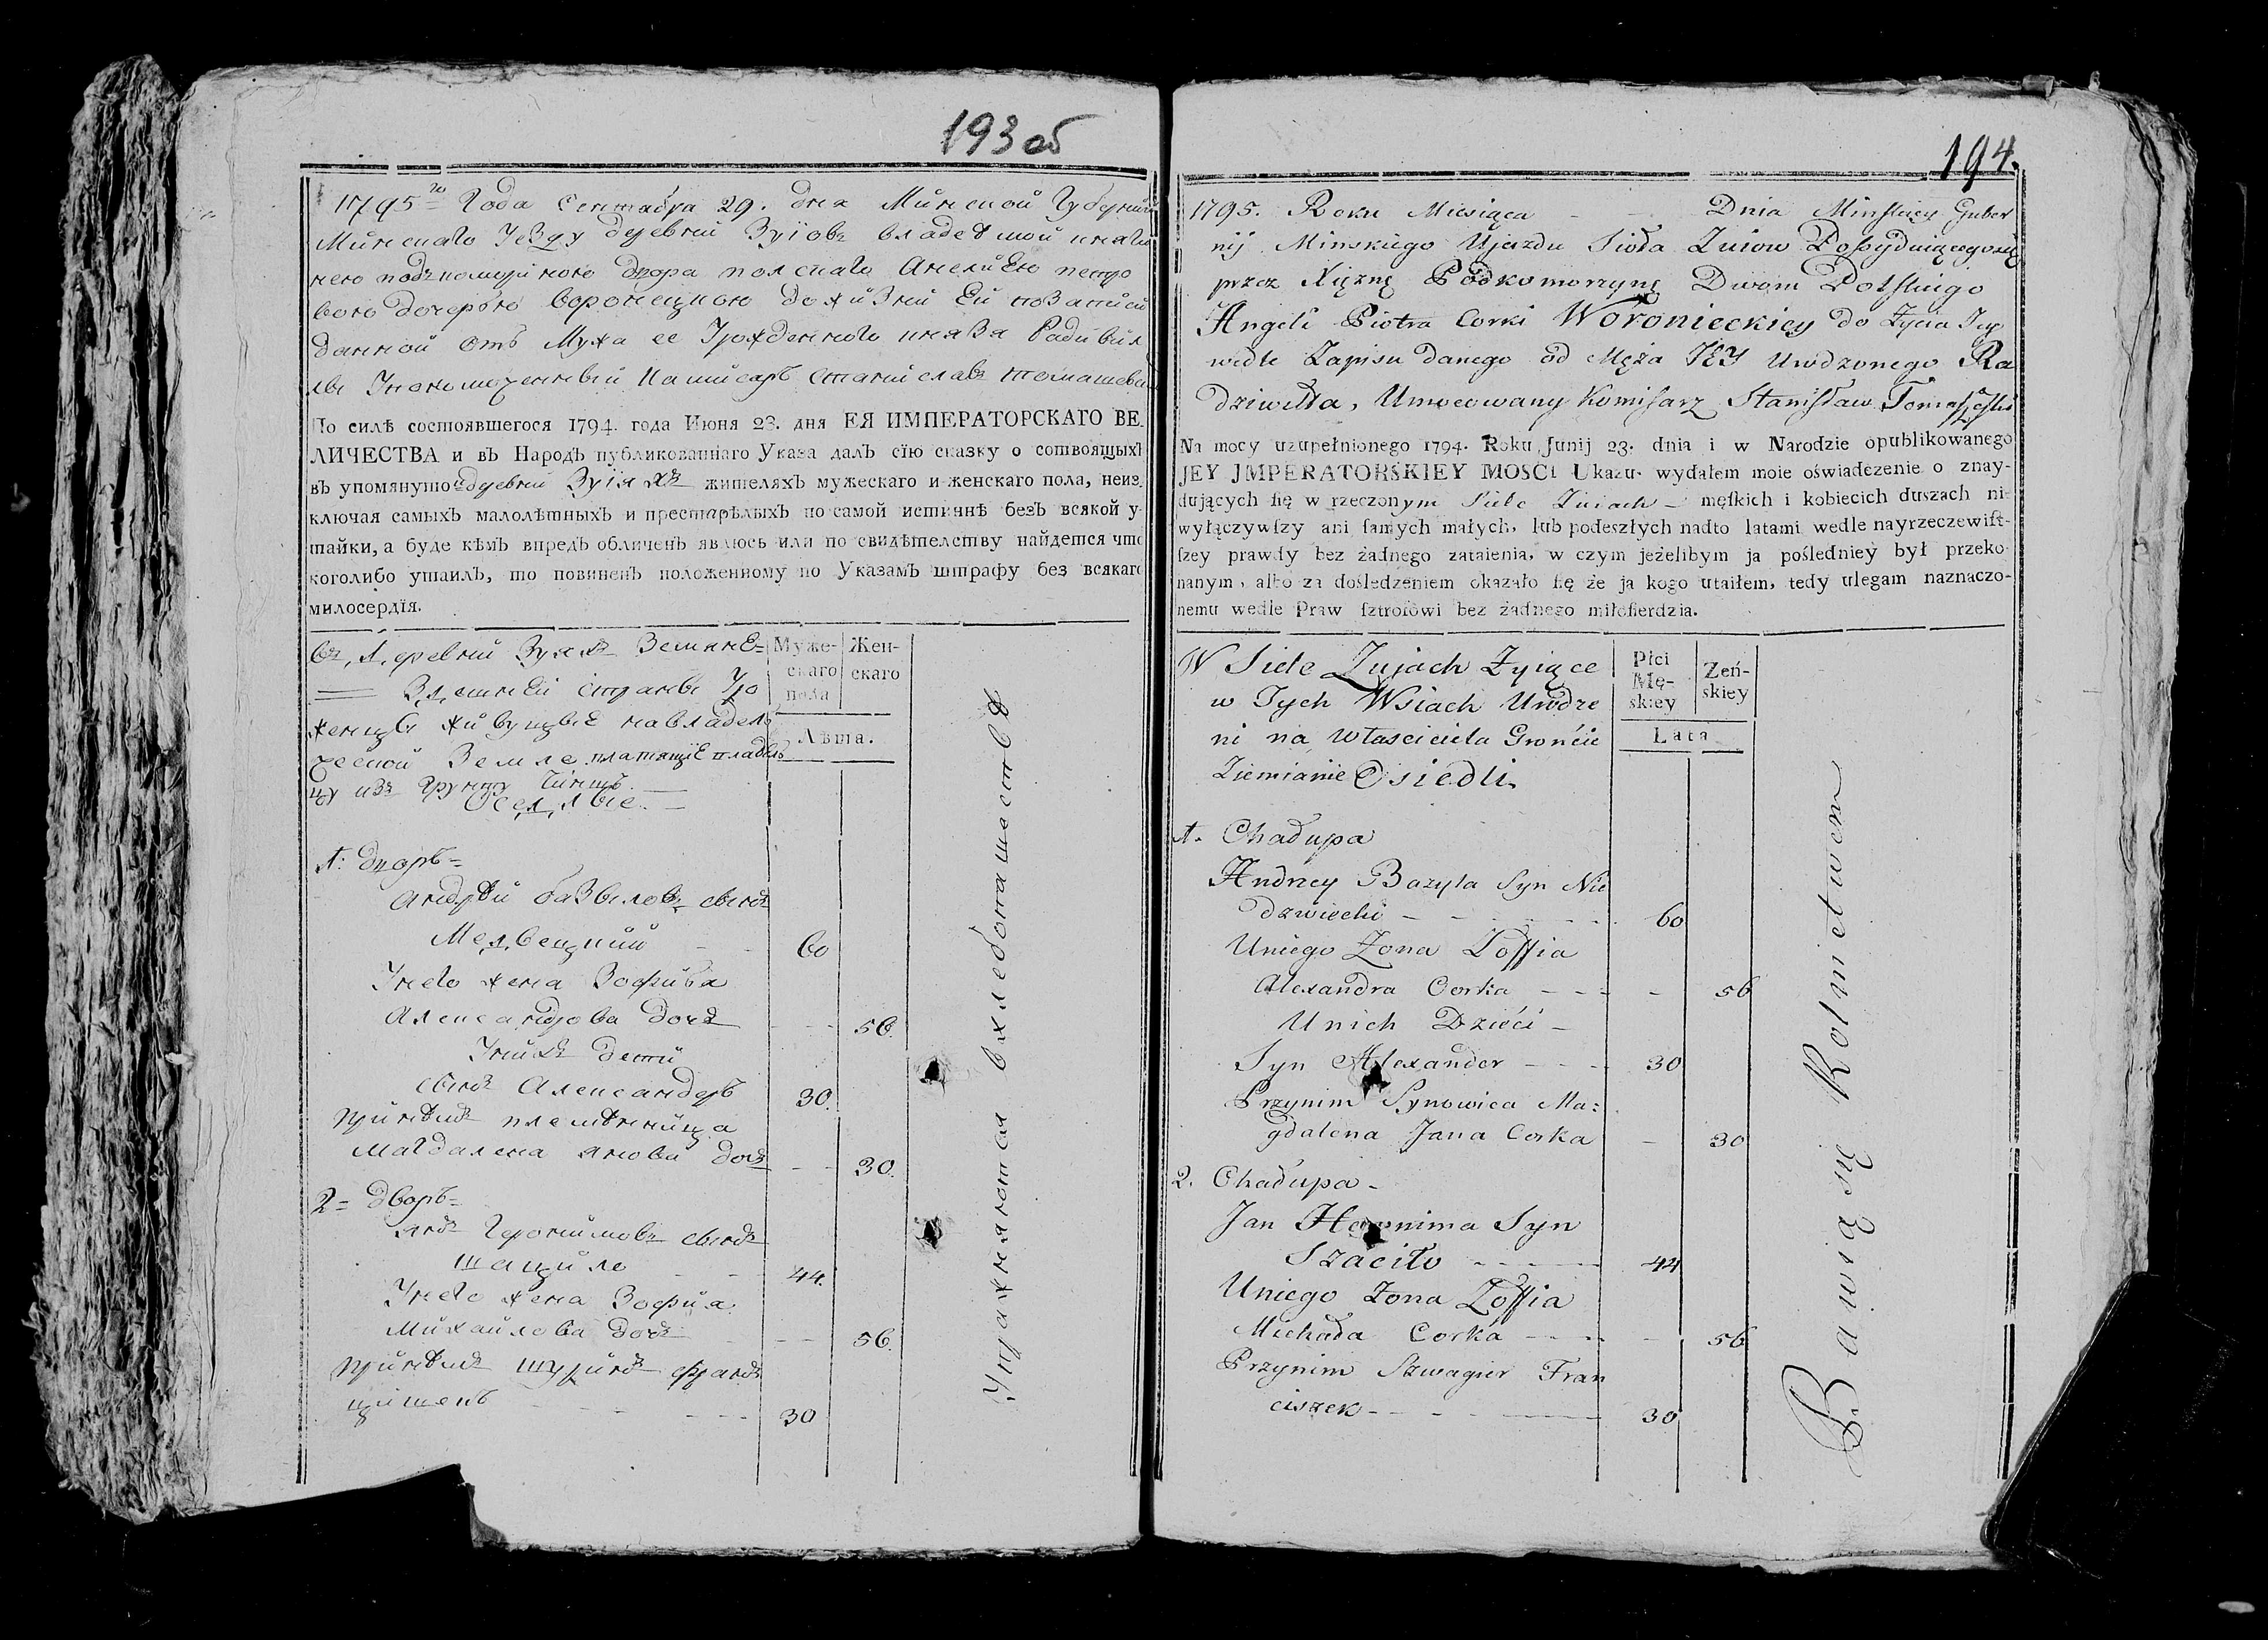 193 об
1795го Года Сентабра 29. дня Минской Губернии
Минскаго Уезду деревни Зуіовъ владеемой княги
нею подъкоморіною двора полскаго Анелиею петро
вою дочерью воронецкою до жизни Ей по записи
данной отъ Мужа ее Урожденного князя Радивил
лы Укомоцованный Камисаръ Станиславъ томашевс
По силѣ состоявшегося 1794. года Июня 23. дня ЕЯ ИМПЕРАТОРСКАГО ВЕ-
ЛИЧЕСТВА и въ Народъ публикованнаго Указа далъ сїю сказку о сотвоящыхъ
въ упомянутой деревни Зуіяхъ жителяхъ мужескаго и женскаго пола, неиз
ключая самыхъ малолѣтныхъ и престарѣлыхъ по самой истиннѣ безъ всякой у-
тайки, а буде кѣмъ впредь обличенъ явлюсь или по свидѣтелству найдется что
коголибо утаилъ, то повиненъ положенному по Указамъ штрафу без всякаго
милосердїя.
въ деревни Зуяхъ Земяне
Здешней страны Уро
женцы живущые навладель
ческой Земле платящие владель
цу изъ грунту Чиншъ
Оселлые
Муже-
скаго
пола
Жен-
скаго
Лѣта.
1: дворъ
андрей базылевъ сынъ
Медвецкий 60
Унего жена Зофия
Александрова дочъ 56.
Унихъ дети
сынъ Александеръ 30
принихъ племеница
Магдалена янова дочъ 30.
2 дворъ
янъ Геронимовъ сынъ
шацило 44.
Унего жена Зофия
Михайлова дочъ 56.
принихъ шуринъ франъ
цишекъ 30
Упражняются вхлебопашестве
194.
1795. Roku Miesiąca Dnia Minskiey Guber
nij Minskiego Ujazdu Sioła Zuiow Possyduiącegosię
przez Xiężnę Podkomorzynę Dworu Polskiego
Angeli Piotra Corki Woronieckiey do Życia Jey
wedle Zapisu danego od Męża JEY Urodzonego Ra
dziwiłła, Umocowany Komisarz Stanisław Tomaszewski
Na mocy uzupełnionego 1794. Roku Junij 23. dnia i w Narodzie opublikowanego
JEY JMPERATORSKIEY MOSCI Ukazu wydałem moie oświadczenie o znay-
dujących się w rzeczonym Siele Zuiach męſkich i kobiecich duszach ni-
wyłączywſzy ani ſamych małych, lub podeszłych nadto latami wedle nayrzeczewiſt-
ſzey prawdy bez żadnego zataienia, w czym jeżelibym ja poślednieу był przeko-
nanym, albo za dośledzeniem okazało ſię że ja kogo utaiłem, tedy ulegam naznaczo-
nemu wedle Praw ſztrofowi bez żadnego miłoſierdzia.
W Siele Zujach Żyiące
w Tych Wsiach Urodze
ni na Własciciela Gronćie
Ziemianie Osiedli.
Płci
Mę-
skiey
Żeń-
skiey
Lata
1. Chałupa
Andrzey Bazyla Syn Nie
dzwiecki 60
Uniego Żona Zoffia
Alexandra Corka 56
Unich Dzieći
Syn Alexander 30
Przynim Synowica Ma:
gdalena Jana Corka 30
2. Chałupa
Jan Heronima Syn
Szaciło 44
Uniego Żona Zoffia
Michała Corka 56
Przynim Szwagier Fran
ciszek 30
Bawią się Rolnictwem